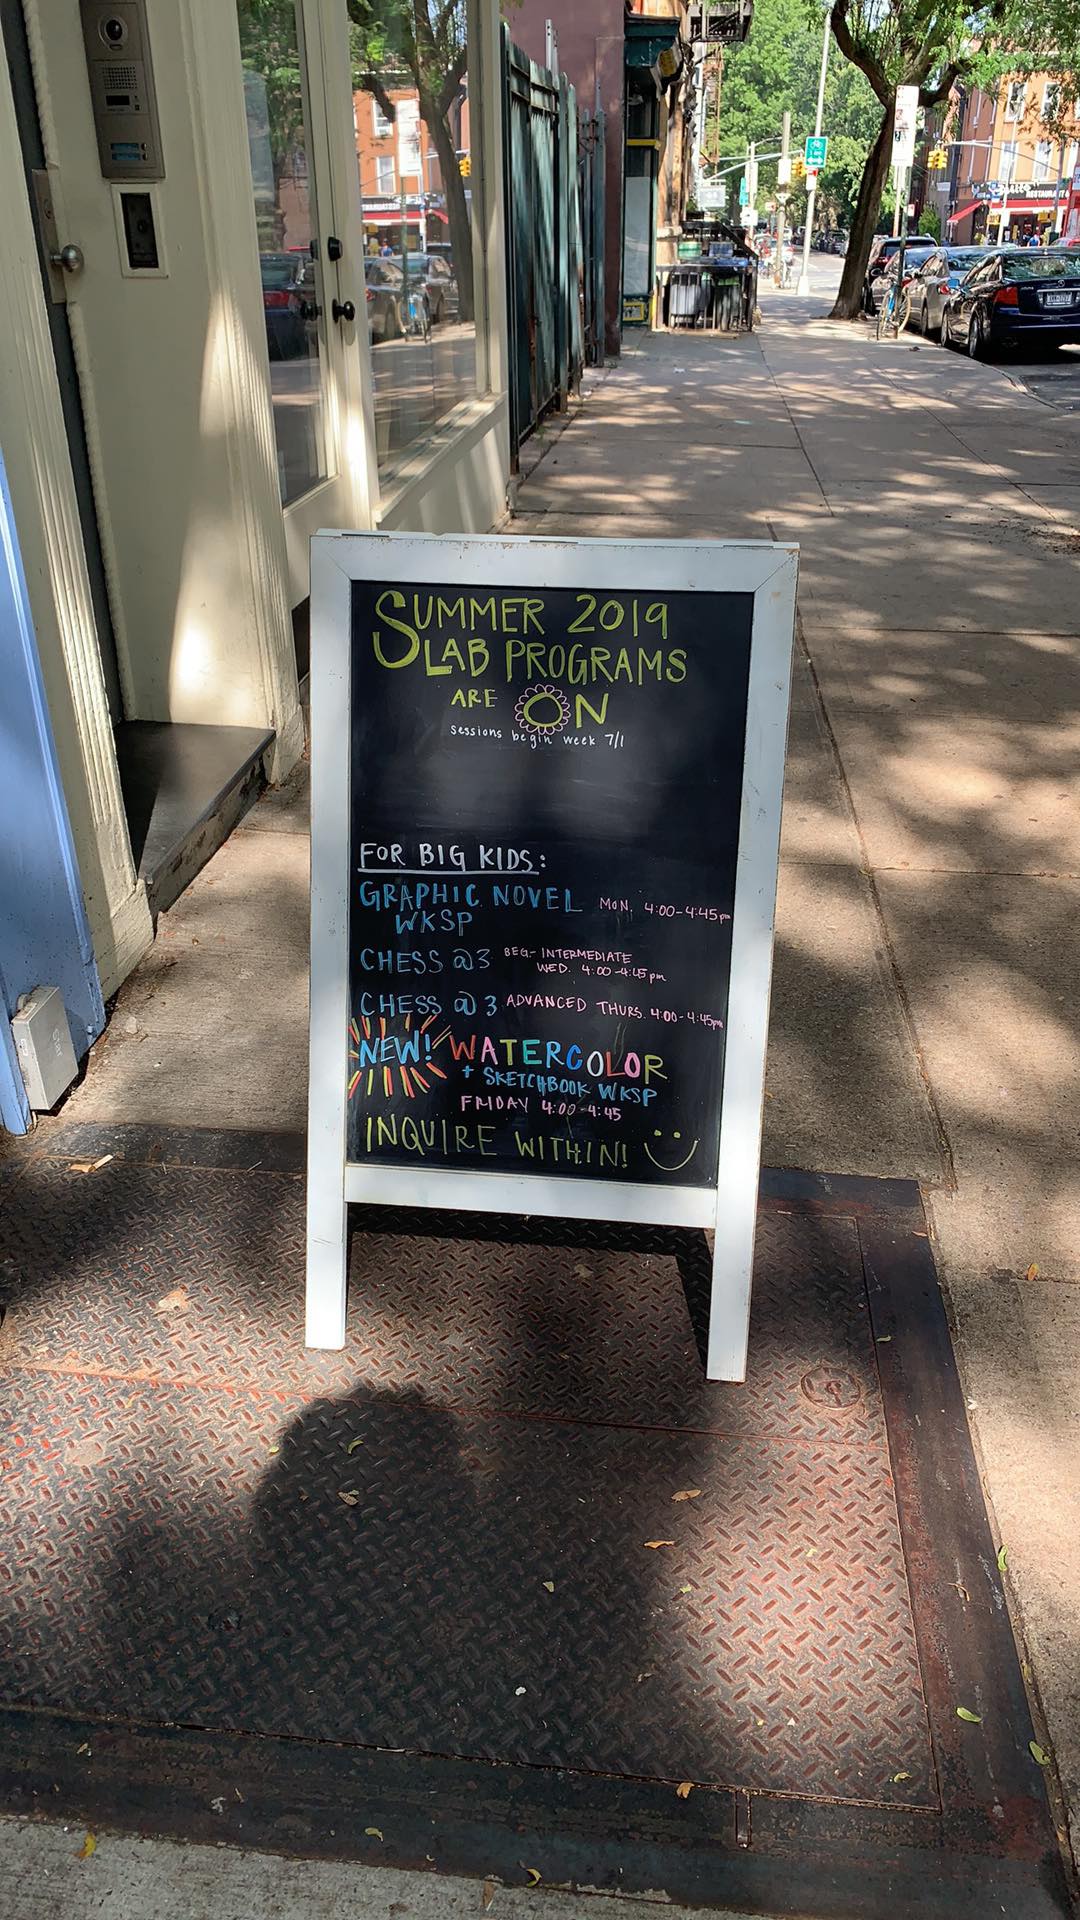 SUMMER 2019
LAB PROGRAMS
ARE ON
sessions begin week 7/1
FOR BIG KIDS:
GRAPHIC NOVEL MON. 4:00-4:45pm
WKSP
CHESS @3 BEG.- INTERMEDIATE
WED. 4:00-4:45pm
CHESS @ 3 ADVANCED THURS. 4:00-4:45pm
NEW! WATERCOLOR
+ SKETCHBOOK WKSP
FRIDAY 4:00-4:45
INQUIRE WITHIN!
RESTAURANT